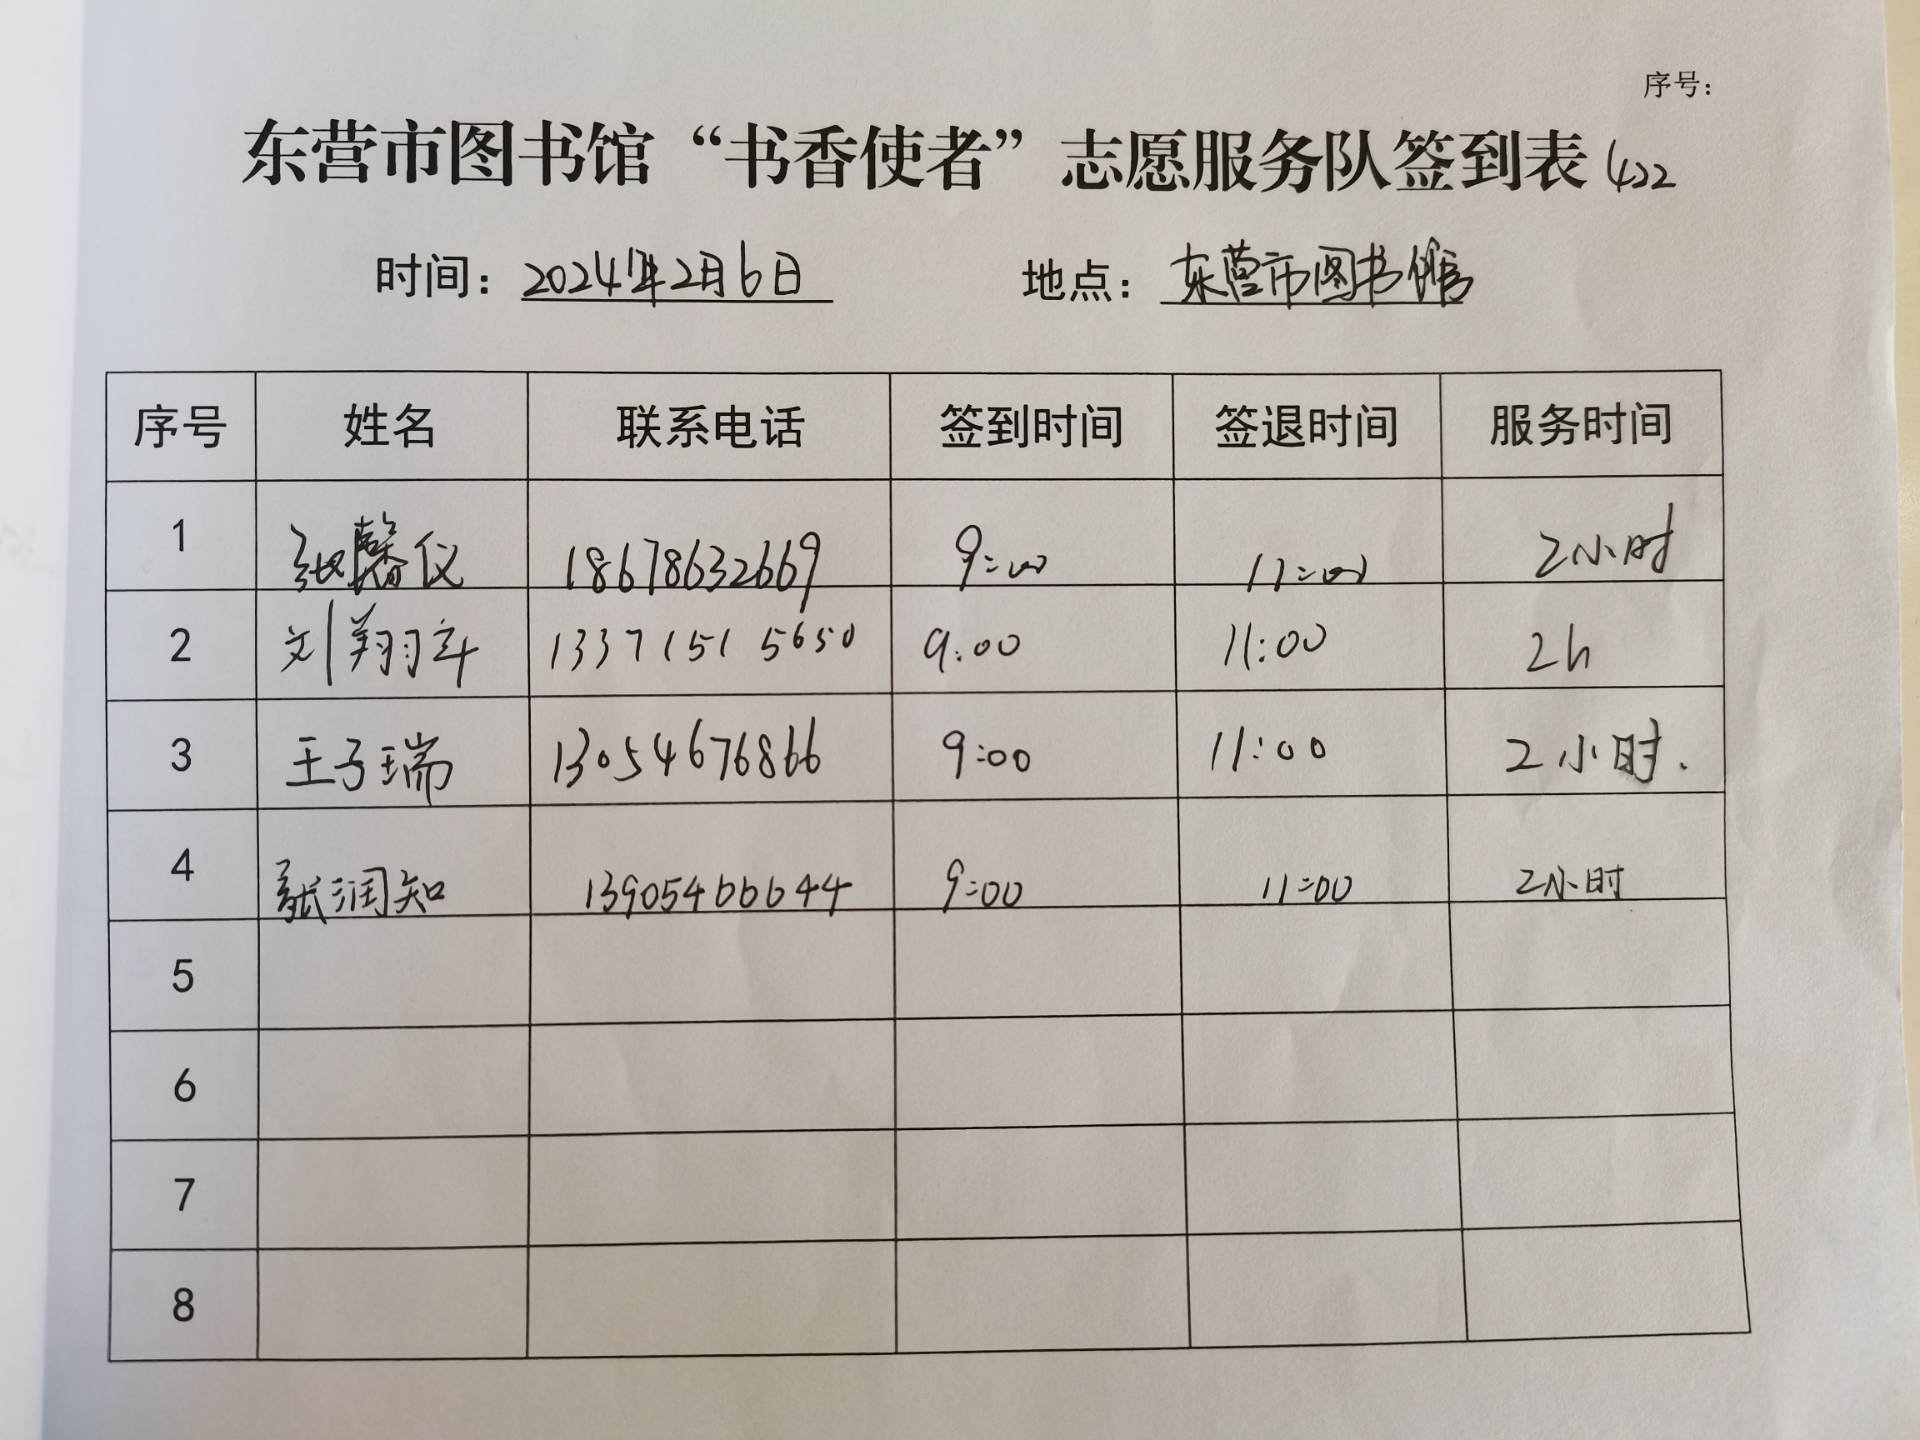 序号：
东营市图书馆“书香使者”志愿服务队签到表 422
时间：2024年2月6日 地点：东营市图书馆
序号 姓名 联系电话 签到时间 签退时间 服务时间
1 张馨仪 18678632669 9:00 11:00 2小时
2 刘翔宇 13371515650 9:00 11:00 2h
3 王子瑞 13054676866 9:00 11:00 2小时.
4 张润知 13905466644 9:00 11:00 2小时
5
6
7
8